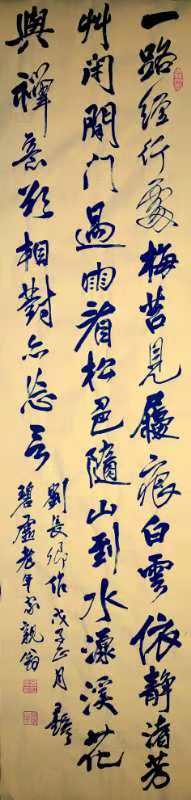 一路經行處梅苔見履痕白雲依靜渚芳
艸閉閒門過雨看松色隨山到水源溪花
與禪意相對亦忘言
劉長卿作戊子月
碧虛老牛家親翁